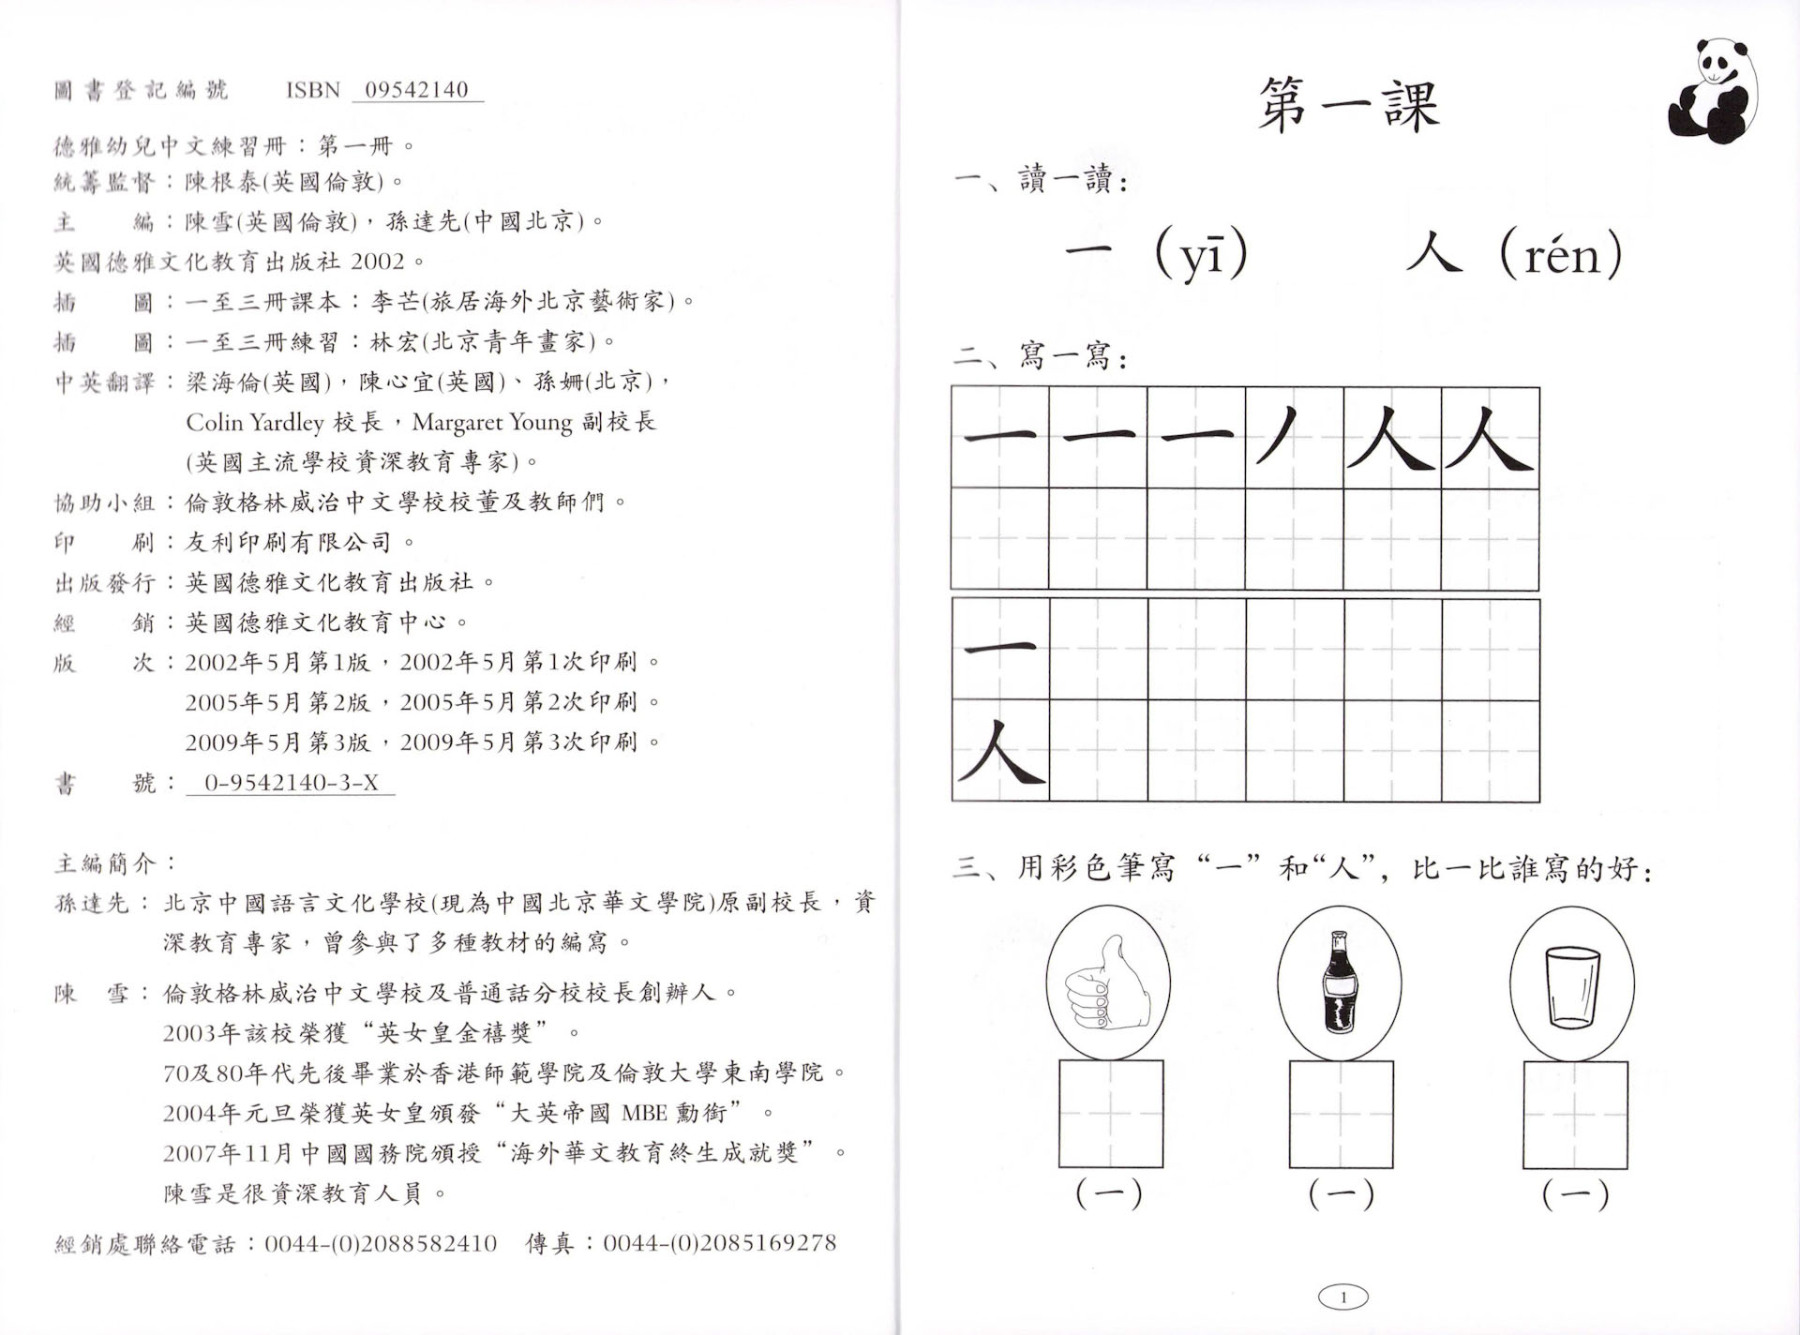 圖書登記編號 ISBN 09542140
德雅幼兒中文練習冊：第一冊。
統籌監督：陳根泰(英國倫敦)。
主 編：陳雪(英國倫敦)，孫達先(中國北京)。
英國德雅文化教育出版社 2002。
插 圖：一至三冊課本：李芒(旅居海外北京藝術家)。
插 圖：一至三冊練習：林宏(北京青年畫家)。
中英翻譯：梁海倫(英國)，陳心宜(英國)、孫姍(北京)，
Colin Yardley 校長，Margaret Young 副校長
(英國主流學校資深教育專家)。
協助小組：倫敦格林威治中文學校校董及教師們。
印 刷：友利印刷有限公司。
出版發行：英國德雅文化教育出版社。
經 銷：英國德雅文化教育中心。
版 次：2002年5月第1版，2002年5月第1次印刷。
2005年5月第2版，2005年5月第2次印刷。
2009年5月第3版，2009年5月第3次印刷。
書 號：0-9542140-3-X
主編簡介：
孫達先：北京中國語言文化學校(現為中國北京華文學院)原副校長，資
深教育專家，曾參與了多種教材的編寫。
陳 雪：倫敦格林威治中文學校及普通話分校校長創辦人。
2003年該校榮獲“英女皇金禧獎”。
70及80年代先後畢業於香港師範學院及倫敦大學東南學院。
2004年元旦榮獲英女皇頒發“大英帝國 MBE 勳銜”。
2007年11月中國國務院頒授“海外華文教育終生成就獎”。
陳雪是很資深教育人員。
經銷處聯絡電話：0044-(0)2088582410 傳真：0044-(0)2085169278
第一課
一、讀一讀：
一（yī） 人（rén）
二、寫一寫：
一 一 一 丿 人 人
一
人
三、用彩色筆寫“一”和“人”，比一比誰寫的好：
（一） （一） （一）
1